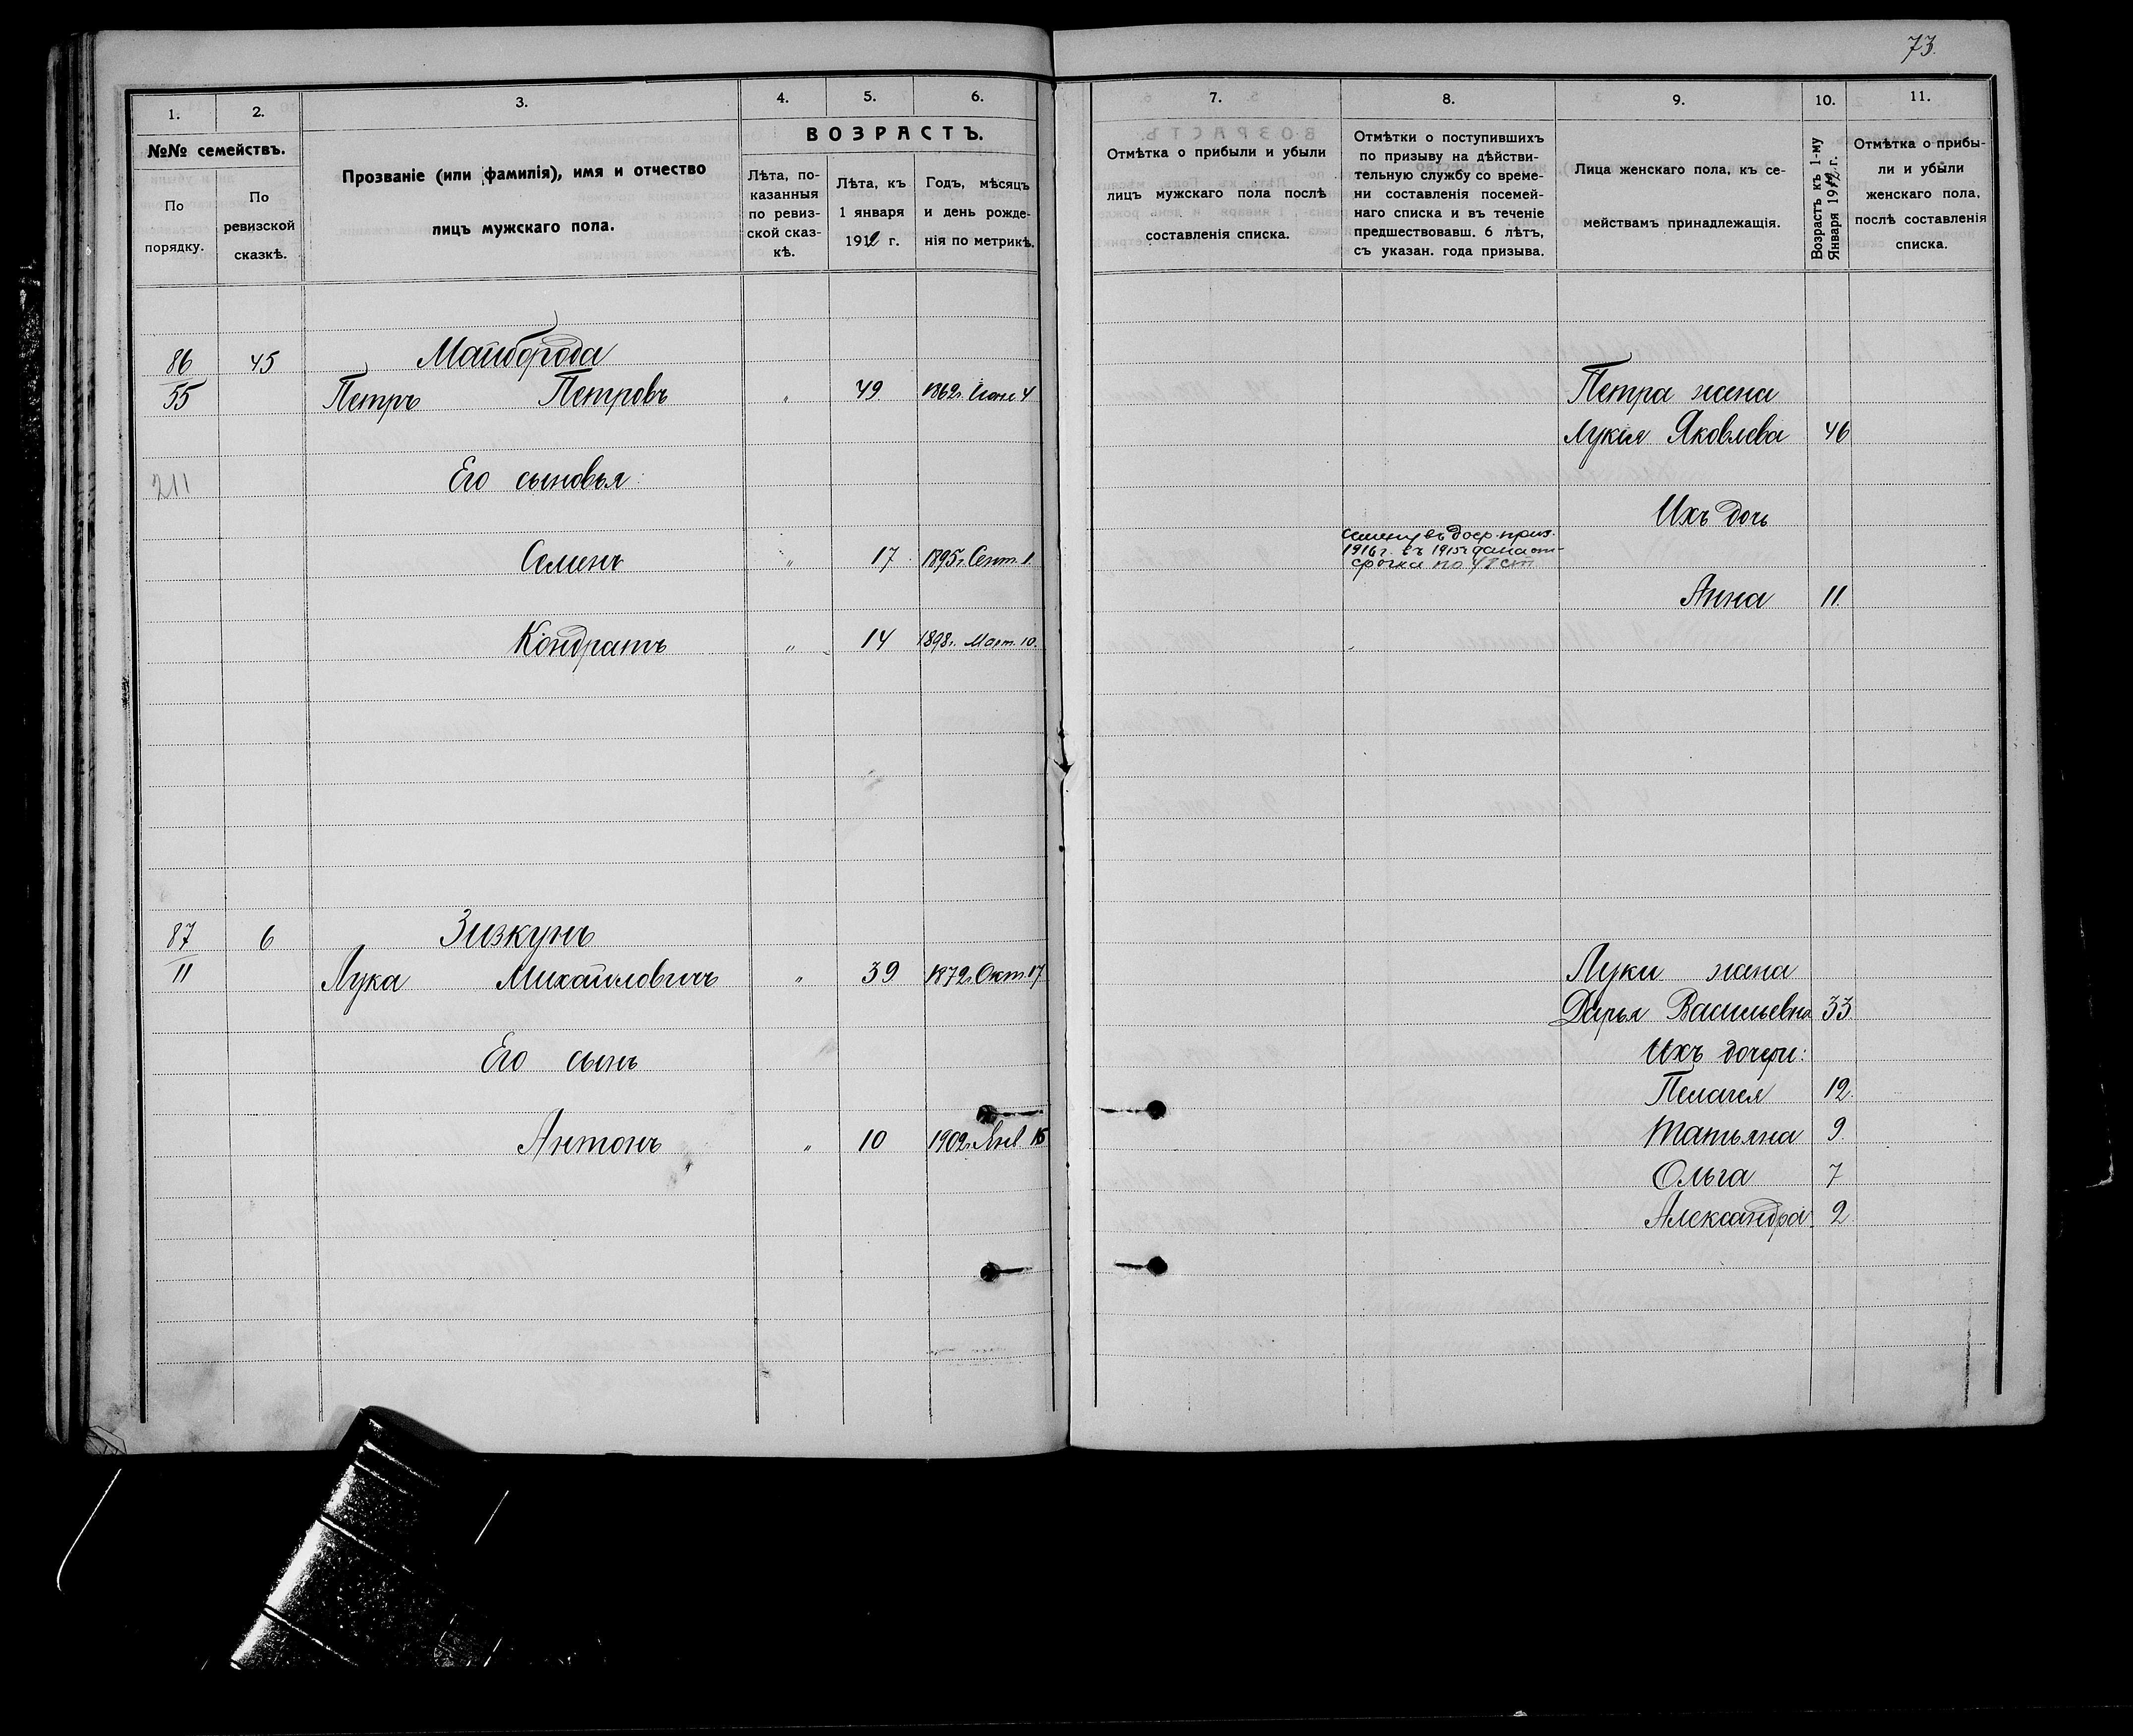 73.
1. 2. 3. 4. 5. 6.
№№ семействъ.
По порядку.
По ревизской сказкѣ.
Прозваніе (или фамилія), имя и отчество
лицъ мужскаго пола.
ВОЗРАСТЪ.
Лѣта, по-
казанныя
по ревиз-
ской сказ-
кѣ.
Лѣта, къ
1 января
1912 г.
Годъ, мѣсяцъ
и день рожде-
нія по метрикѣ.
86 45 Майборода
55 Петръ Петровъ " 49 1862г. Іюня 4
211 Его сыновья:
Семенъ " 17 1895г. Сент. 1
Кондратъ " 14 1898г. Март. 10.
87 6 Зизкунъ
11 Лука Михайловичъ " 39 1872г. Окт. 17
Его сынъ
Антонъ " 10 1902г. Янв 15
7. 8. 9. 10. 11.
Отмѣтка о прибыли и убыли
лицъ мужскаго пола послѣ
составленія списка.
Отмѣтки о поступившихъ
по призыву на дѣйстви-
тельную службу со време-
ни составленія посемей-
наго списка и въ теченіе
предшествовавш. 6 лѣтъ,
съ указан. года призыва.
Лица женскаго пола, къ се-
мействамъ принадлежащія.
Возрастъ къ 1-му
Января 1912 г.
Отмѣтка о прибы-
ли и убыли
женскаго пола,
послѣ составленія
списка.
Петра жена
Лукія Яковлева 46
Ихъ дочь
Семену въ доср. приз.
1916 г. въ 1915 г дана от-
срочка по 48 ст
Анна 11.
Луки жена
Дарья Васильевна 33.
Ихъ дочери:
Пелагея 12.
Татьяна 9.
Ольга 7
Александра 2.